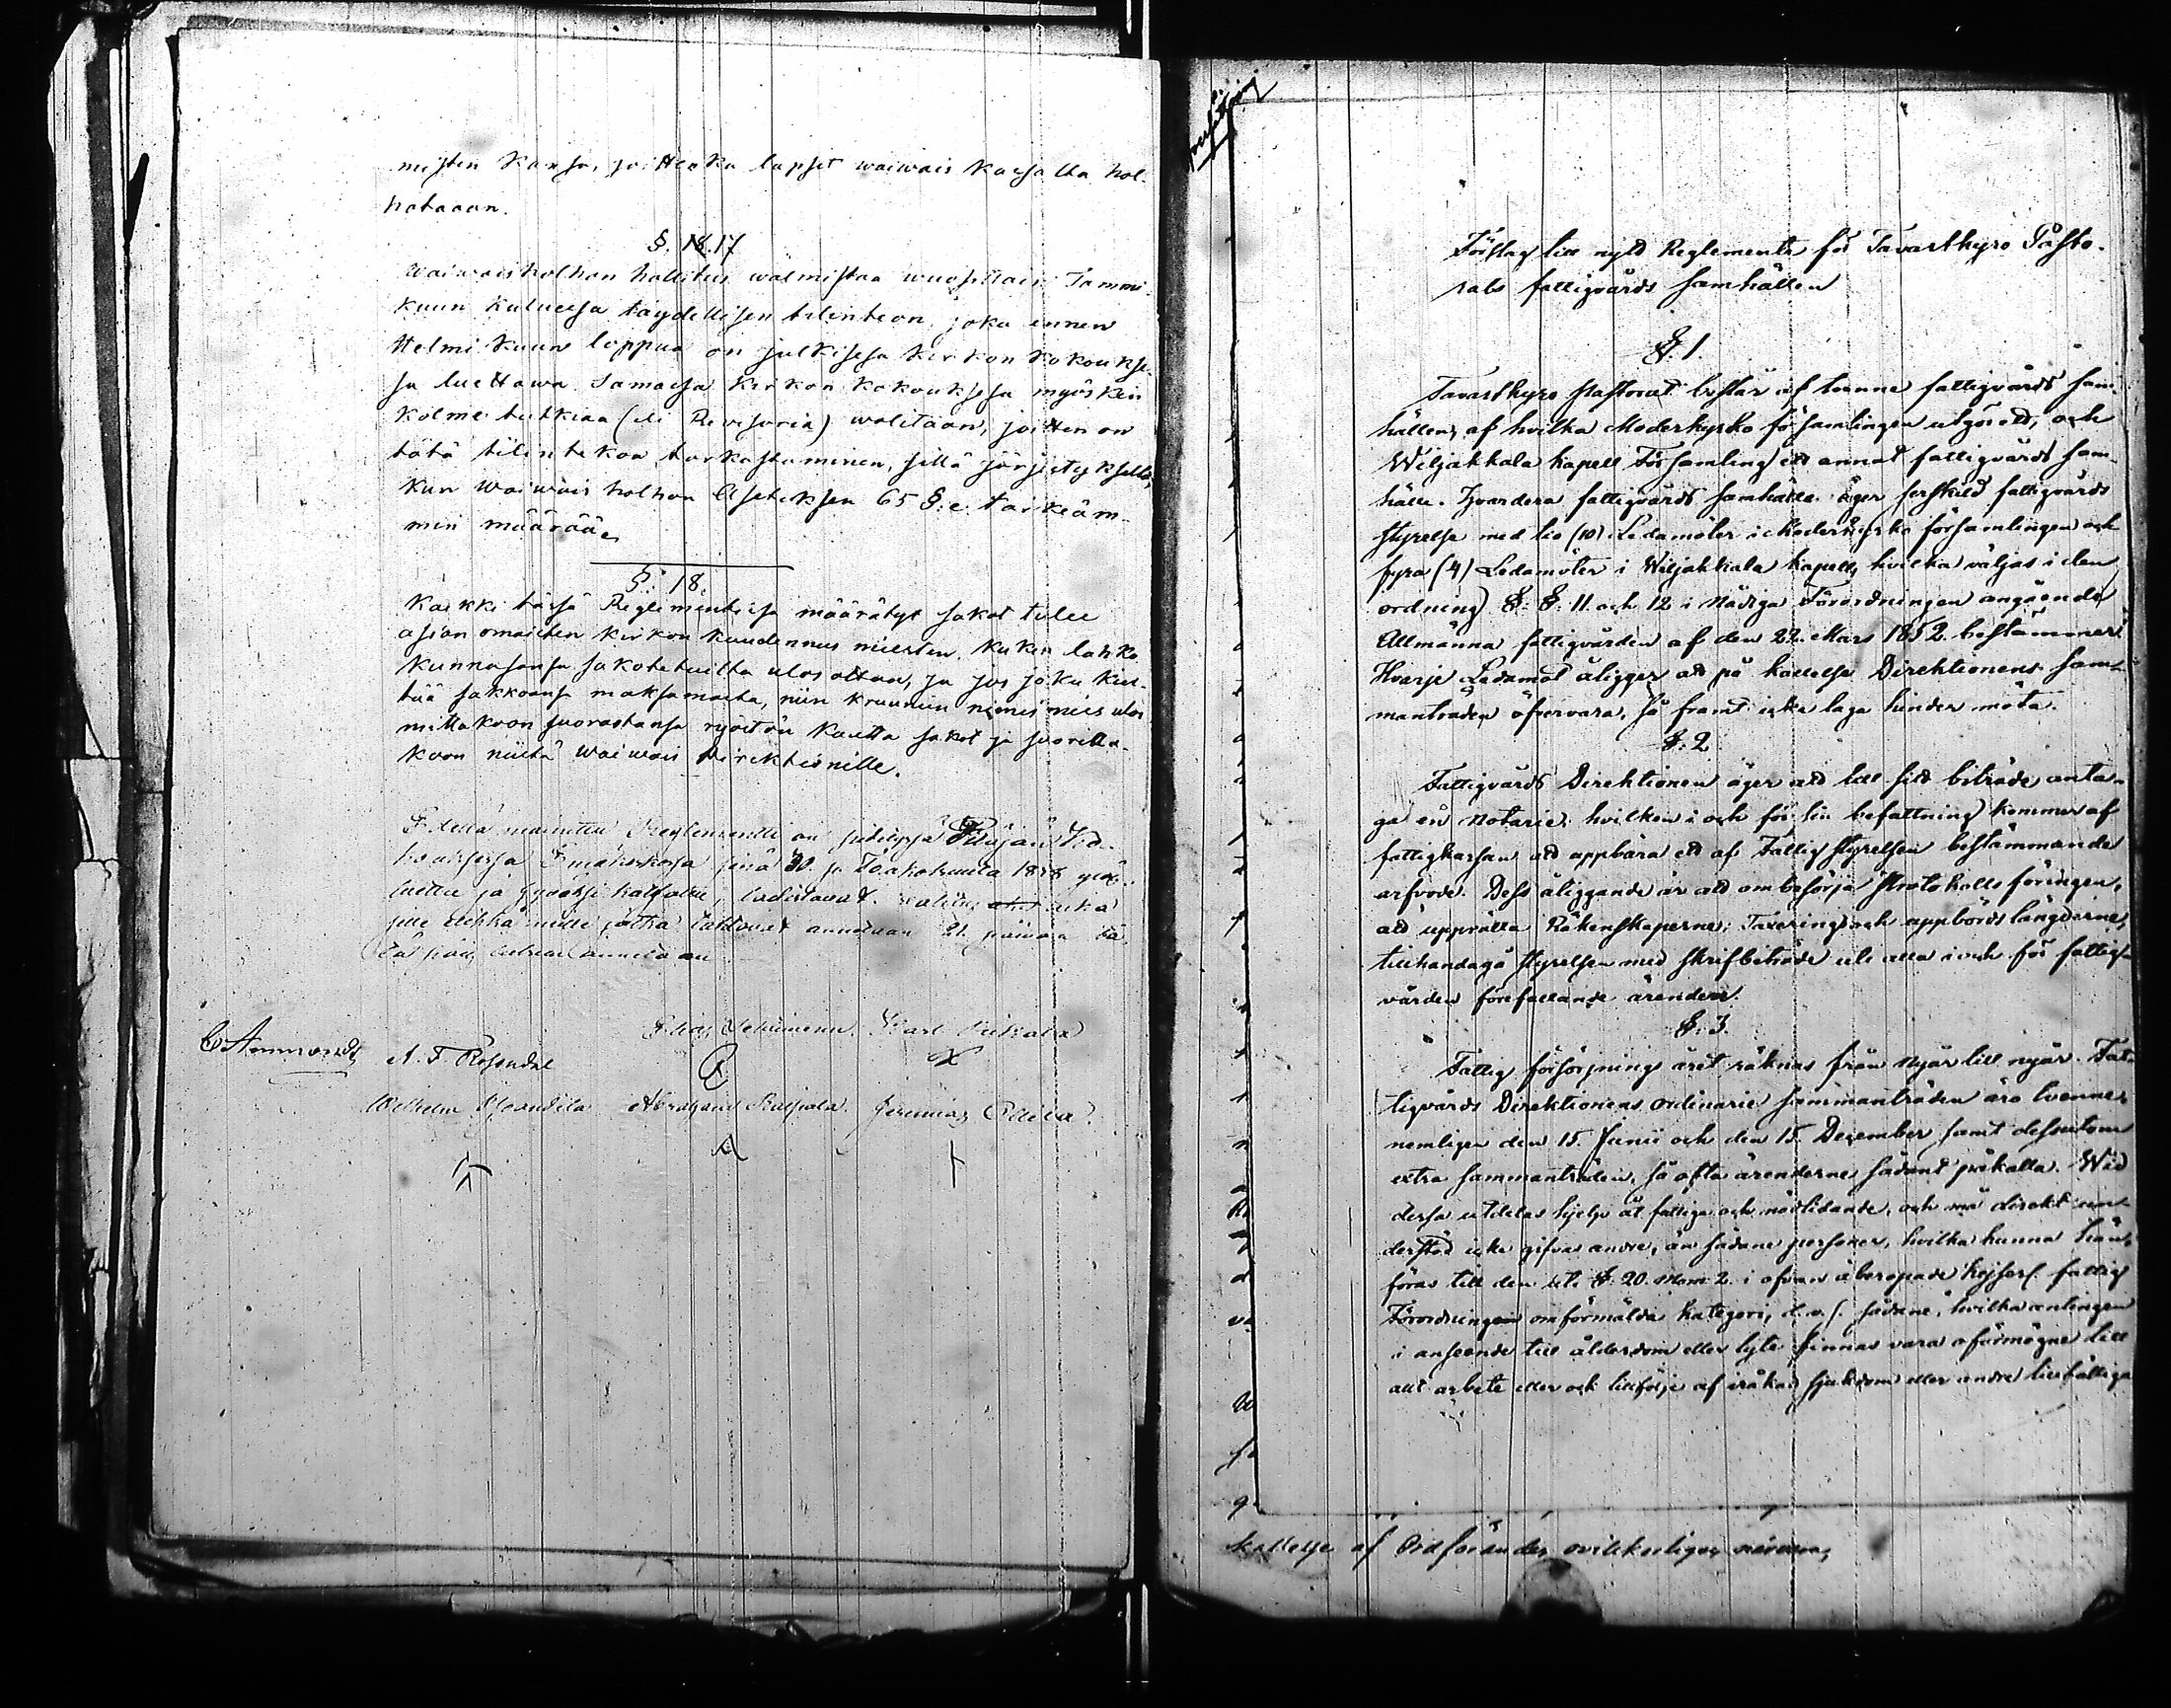 misten kansa, joittenka lapset waiwais kassalta hol-
hotaan.
§. 18. 17
Waiwaisholhon hallitus walmistaa wuosittain Tammi-
kuun kuluessa täydellisen tilinteon, joka ennen
Helmikuun loppua on julkisessa kirkon kokoukse-
sa luettawa. Samassa kirkon kokouksessa myöskin
kolme tutkiaa (eli Revisoria) walitaan, joitten on
tätä tilintekoa tarkastaminen, sillä järjestyksellä,
kun waiwais holhon Asetuksen 65 §:e tarkeäm-
min määrää.
§. 18.
Kaikki tässä Reglementissa määrätyt sakot tulee
asian omaisten kirkon kuudennus miesten, kukin lahko
kunnasansa sakotetuilta ulos ottaa, ja jos joku kiel-
tää sakkoansa maksamasta, niin kruunun nimismies ulos
mittakoon suorastansa ryöstön kautta sakot ja suoritta-
koon niitä waiwais Direktionille.
Edellä mainittu Reglementti on pidetyssä Pitäjän
kokouksessa Emäkirkossa 1858
luettu ja hywäksi katsottu, todistawat.
Elias Karl
C. Ammondt A. F. Rosendal
Wilhelm Abraham Jeremias
Förslag till nytt Reglemente för Tavastkyro Pasto-
rats fattigvårds samhällen
§. 1.
Tavastkyro Pastorat består af tvenne fattigvårds sam-
hällen, af hvilka Moderkyrko församlingen utgör ett, och
Wiljakkala Kapell Församling ett annat fattigvårds sam-
hälle. Hvardera fattigvårds samhälle äger serskild fattigvårds
styrelse med tio (10) Ledamöter i Moderkyrko församlingen och
fyra (4) Ledamöter i Wiljakkala Kapell, hvilka väljas i den
ordning §. §. 11 och 12 i Nådiga Förordningen angående
Allmänna fattigvården af den 22 Mars 1852 bestämmer.
Hvarje Ledamot åligger att på kallelse Direktionens sam-
manträden öfvervara, så framt icke laga hinder möta.
§. 2
Fattigvårds Direktionen äger att till sitt biträde anta-
ga en Notarie, hvilken i och för sin befattning kommer af
fattigkassan att uppbära ett af Fattigstyrelsen bestämmande
arfvode. Dess åliggande är att ombesörja Protokolls föringen,
att upprätta Räkenskaperne, Taxerings och uppbörds längderne,
tillhandagå styrelsen med skrifbiträde uti alla i och för fattig-
vården förefallande ärender.
§. 3.
Fattig försörjnings året räknas från nyår till nyår. Fat-
tigvårds Direktionens ordinarie sammanträden äro tvenne,
nemligen den 15. Junii och den 15. December samt dessutom
extra sammanträden, så ofta ärenderne sådant påkalla. Wid
dessa utdelas hjelp åt fattiga och nödlidande, och må direkt un-
derstöd icke gifvas andre, än sådane personer, hvilka kunna hän-
föras till den uti §. 20. mom 2. i ofvan åberopade Kejserl. fattig
Förordningen omförmälda kategori, d. v. s. sådane, hvilka antingen
i anseende till ålderdom eller lyte finnas vara oförmögne till
allt arbete eller och tillfölje af iråkad sjukdom eller andre tillfälliga
kallelse af Ordföranden ovilkorligen